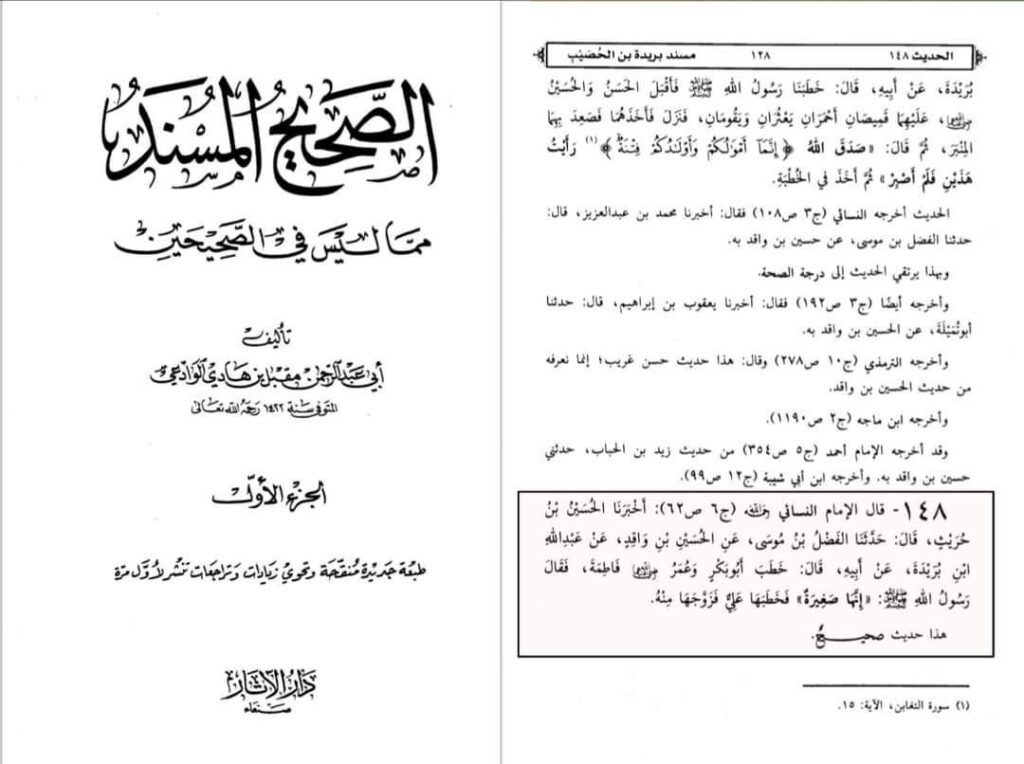 الصَّحِيحُ المُسْنَدُ
ممَّا لَيْسَ فِي الصَّحِيحَيْنِ
تأليف
أبي عَبْدِ الرَّحمن مُقبل بن هَادي الوَادعيّ
المتوفى سنة ١٤٢٢ رحمه الله تعالى
الجزء الأوّل
طبعة جديدة مُنقّحة وتحوي زيادات وتراجعات تنشر لأوّل مرّة
دَارُ الآثار
صنعاء
الحديث ١٤٨ ١٢٨ مسند بريدة بن الحُصَيْبِ
بُرَيْدَةَ، عَنْ أَبِيهِ، قَالَ: خَطَبَنَا رَسُولُ اللهِ ﷺ فَأَقْبَلَ الحَسَنُ وَالحُسَيْنُ
، عَلَيْهِمَا قَمِيصَانِ أَحْمَرَانِ يَعْثُرَانِ وَيَقُومَانِ، فَنَزَلَ فَأَخَذَهُمَا فَصَعِدَ بِهِمَا
المِنْبَرَ، ثُمَّ قَالَ: «صَدَقَ اللهُ ﴿إِنَّمَآ أَمْوَٰلُكُمْ وَأَوْلَٰدُكُمْ فِتْنَةٌ﴾ (١) رَأَيْتُ
هَذَيْنِ فَلَمْ أَصْبِرْ» ثُمَّ أَخَذَ فِي الخُطْبَةِ.
الحديث أخرجه النسائي (ج٣ ص١٠٨) فقال: أخبرنا محمد بن عبدالعزيز، قال:
حدثنا الفضل بن موسى، عن حسين بن واقد به.
وبهذا يرتقي الحديث إلى درجة الصحة.
وأخرجه أيضًا (ج٣ ص١٩٢) فقال: أخبرنا يعقوب بن إبراهيم، قال: حدثنا
أبوتُمَيْلَةَ، عن الحسين بن واقد به.
وأخرجه الترمذي (ج١٠ ص٢٧٨) وقال: هذا حديث حسن غريب؛ إنما نعرفه
من حديث الحسين بن واقد.
وأخرجه ابن ماجه (ج٢ ص١١٩٠).
وقد أخرجه الإمام أحمد (ج٥ ص٣٥٤) من حديث زيد بن الحباب، حدثني
حسين بن واقد به. وأخرجه ابن أبي شيبة (ج١٢ ص٩٩).
١٤٨- قال الإمام النسائي رحمه الله (ج٦ ص٦٢): أَخْبَرَنَا الحُسَيْنُ بْنُ
حُرَيْثٍ، قَالَ: حَدَّثَنَا الفَضْلُ بْنُ مُوسَى، عَنِ الحُسَيْنِ بْنِ وَاقِدٍ، عَنْ عَبْدِاللهِ
ابْنِ بُرَيْدَةَ، عَنْ أَبِيهِ، قَالَ: خَطَبَ أَبُوبَكْرٍ وَعُمَرُ فَاطِمَةَ، فَقَالَ
رَسُولُ اللهِ ﷺ: «إِنَّهَا صَغِيرَةٌ» فَخَطَبَهَا عَلِيٌّ فَزَوَّجَهَا مِنْهُ.
هذا حديث صحيحٌ.
(١) سورة التغابن، الآية: ١٥.